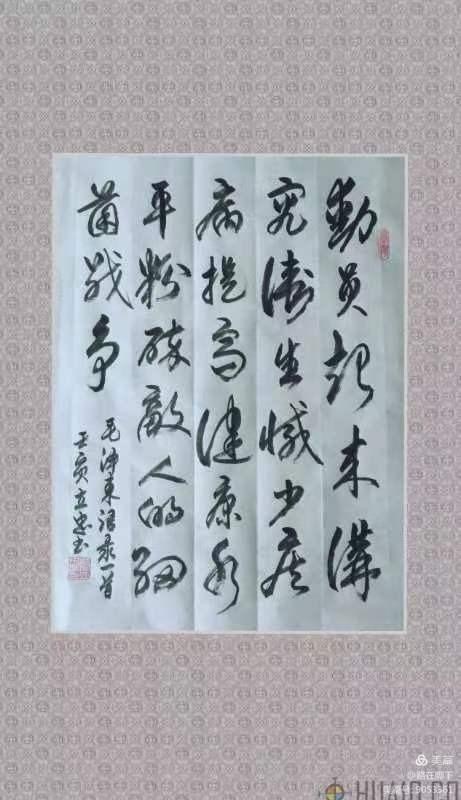 動员起来講
究衛生減少疾
病提高健康水
平粉碎敵人的细
菌战争
毛泽東语录一首
壬寅立忠书
美篇
@路在脚下
美篇号:9053361